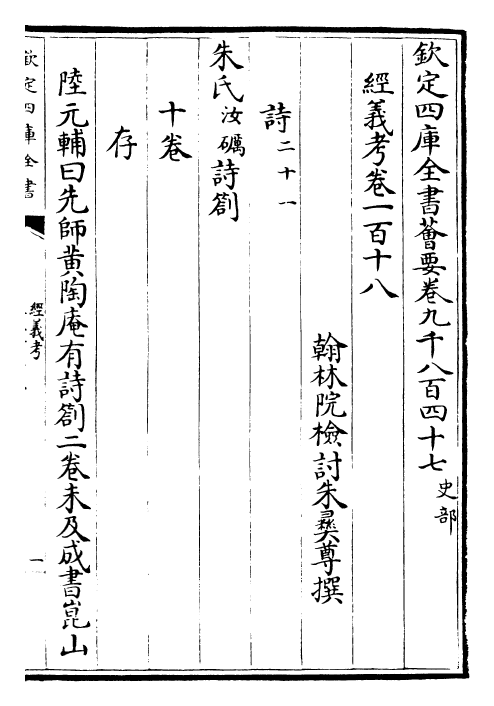 欽定四庫全書薈要卷九千八百四十七史部
經義考卷一百十八
翰林院檢討朱彞尊撰
詩二十一
朱氏汝礪詩劄
十卷
存
陸元輔曰先師黄陶庵有詩劄二卷未及成書崑山
欽定四庫全書
經義考
一